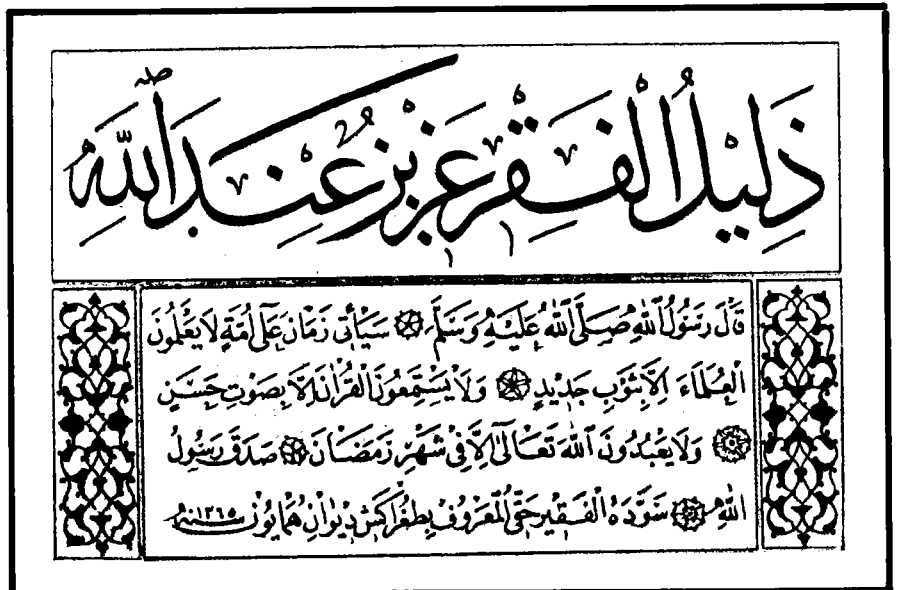 ذَلِيلُ الْفَقْرِ عَزِيزٌ عِنْدَ اللهِ
قَالَ رَسُولُ اللهِ صَلَّى اللهُ عَلَيْهِ وَسَلَّمَ سَيَأْتِي زَمَانٌ عَلَى أُمَّةٍ لَا يَعْلَمُونَ
الْعُلَمَاءَ إِلَّا بِثَوْبٍ جَدِيدٍ وَلَا يَسْتَمِعُونَ الْقُرْآنَ إِلَّا بِصَوْتٍ حَسَنٍ
وَلَا يَعْبُدُونَ اللهَ تَعَالَى إِلَّا فِي شَهْرِ رَمَضَانَ صَدَقَ رَسُولُ
اللهِ سَوَّدَهُ الْفَقِيرُ حَقِّي الْمَعْرُوفُ بِطُغْرَاكَشِ دِيوَانِ هُمَايُونْ سنه ١٣٦٥